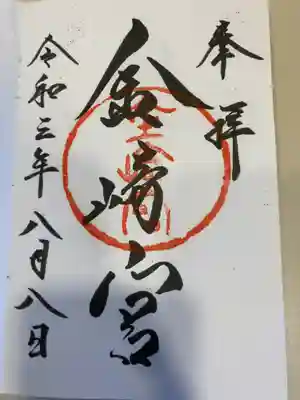 奉拝
金崎宮
令和三年八月八日